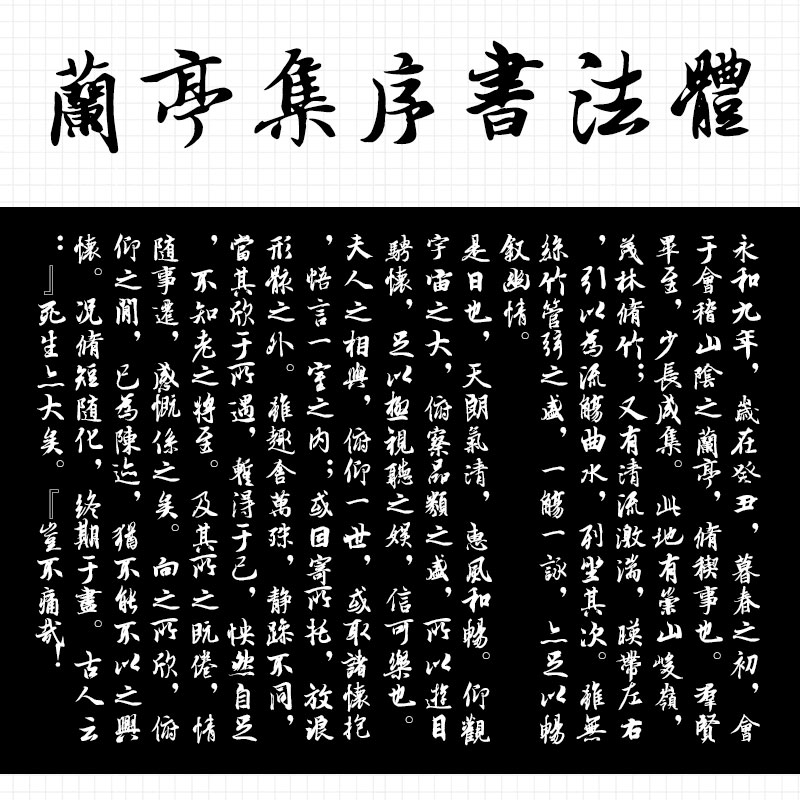 蘭亭集序書法體
永和九年，歲在癸丑，暮春之初，會
于會稽山陰之蘭亭，脩稧事也。羣賢
畢至，少長咸集。此地有崇山峻嶺，
茂林脩竹；又有清流激湍，暎帶左右
，引以為流觴曲水，列坐其次。雖無
絲竹管弦之盛，一觴一詠，亦足以暢
叙幽情。
是日也，天朗氣清，惠風和暢。仰觀
宇宙之大，俯察品類之盛，所以遊目
騁懷，足以極視聽之娛，信可樂也。
夫人之相與，俯仰一世，或取諸懷抱
，悟言一室之内；或因寄所托，放浪
形骸之外。雖趣舍萬殊，静躁不同，
當其欣于所遇，暫得于己，怏然自足
，不知老之將至。及其所之既倦，情
随事遷，感慨係之矣。向之所欣，俯
仰之閒，已為陳迹，猶不能不以之興
懷。况脩短随化，終期于盡。古人云
：』死生亦大矣。『豈不痛哉！